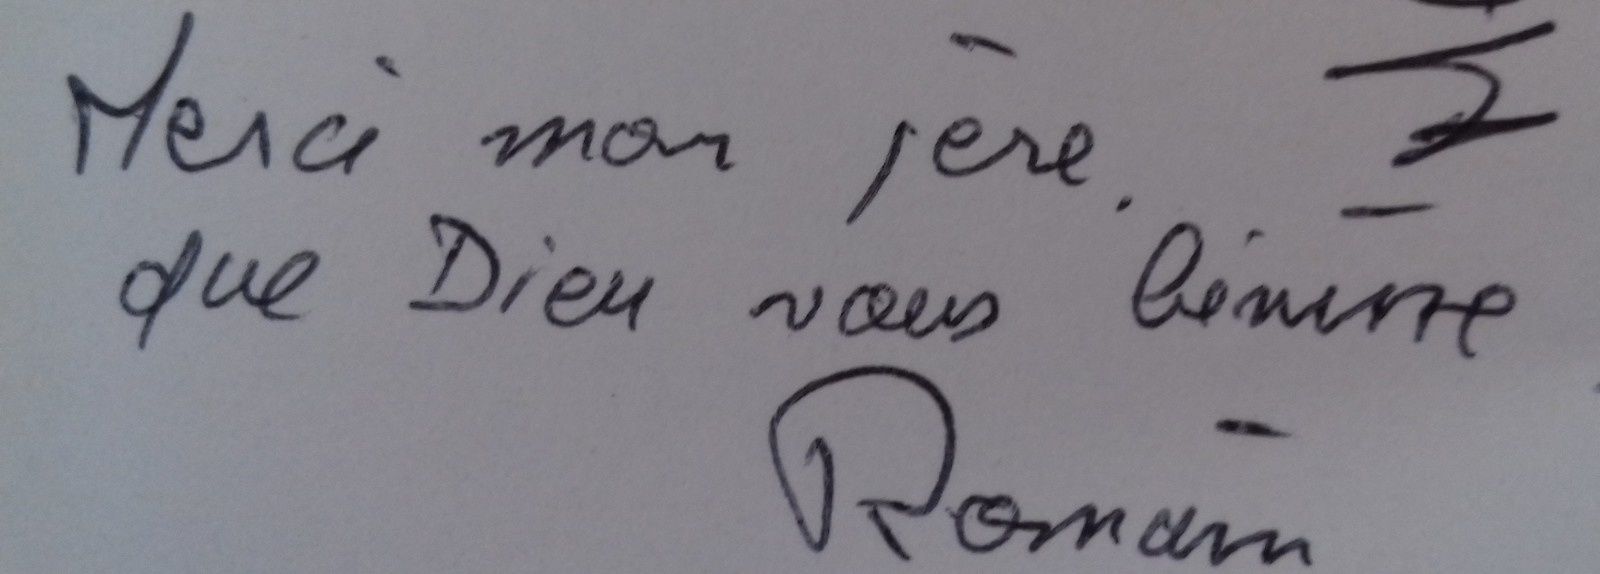 Merci mon père.
que Dieu vous bénisse
Romain